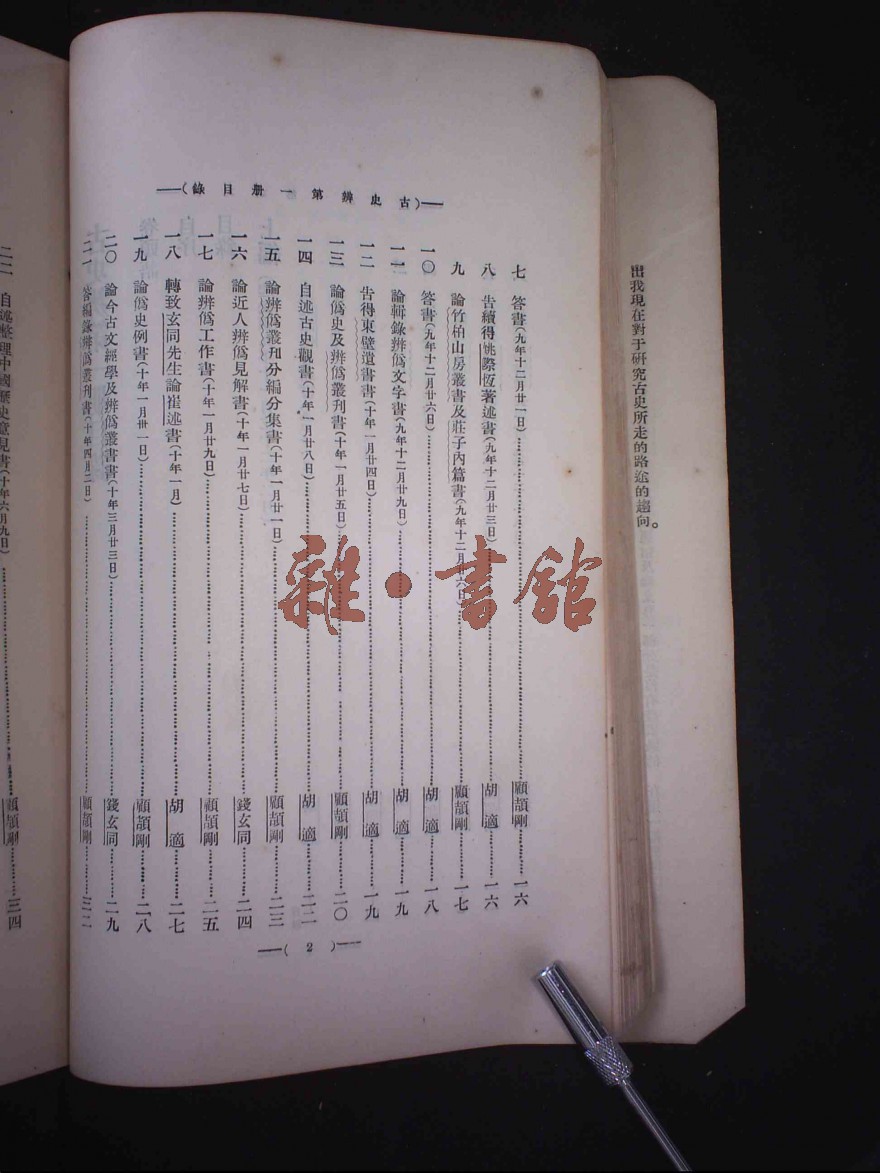 出我現在對于研究古史所走的路途的趨向。
(古史辨第一册目錄)
七 答書(九年十二月廿一日) 顧頡剛 一六
八 告續得姚際恆著述書(九年十二月廿三日) 胡適 一六
九 論竹柏山房叢書及莊子內篇書(九年十二月 六日) 顧頡剛 一七
一〇 答書(九年十二月廿六日) 胡適 一八
一一 論輯錄辨僞文字書(九年十二月廿九日) 胡適 一九
一二 告得東壁遺書書(十年一月廿四日) 胡適 一九
一三 論僞史及辨僞叢刊書(十年一月廿五日) 顧頡剛 二〇
一四 自述古史觀書(十年一月廿八日) 胡適 二二
一五 論辨僞叢刊分編分集書(十年一月廿一日) 顧頡剛 二三
一六 論近人辨僞見解書(十年一月廿七日) 錢玄同 二四
一七 論辨僞工作書(十年一月廿九日) 顧頡剛 二五
一八 轉致玄同先生論崔述書(十年一月) 胡適 二七
一九 論僞史例書(十年一月卅一日) 顧頡剛 二八
二〇 論今古文經學及辨僞叢書書(十年三月廿三日) 錢玄同 二九
二一 答編錄辨僞叢刊書(十年四月二日) 顧頡剛 三二
(2)
二二 自述整理中國歷史意見書(十年六月九日) 顧頡剛 三四
雜·書館